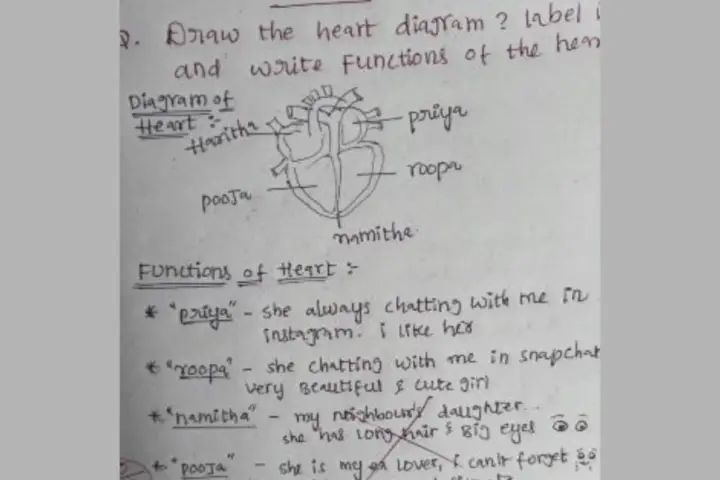 Q. Draw the heart diagram ? label
and write Functions of the
Diagram of
Heart :-
Haritha
priya
pooja
roopa
namitha.
Functions of Heart :-
* "priya" - she always chatting with me in
instagram. i like her
* "roopa" - she chatting with me in snapchat
very Beautiful & cute girl
* "namitha" - my neighbour's daughter..
she has long hair & Big eyes
* "pooja" - she is my ex lover, i can't forget